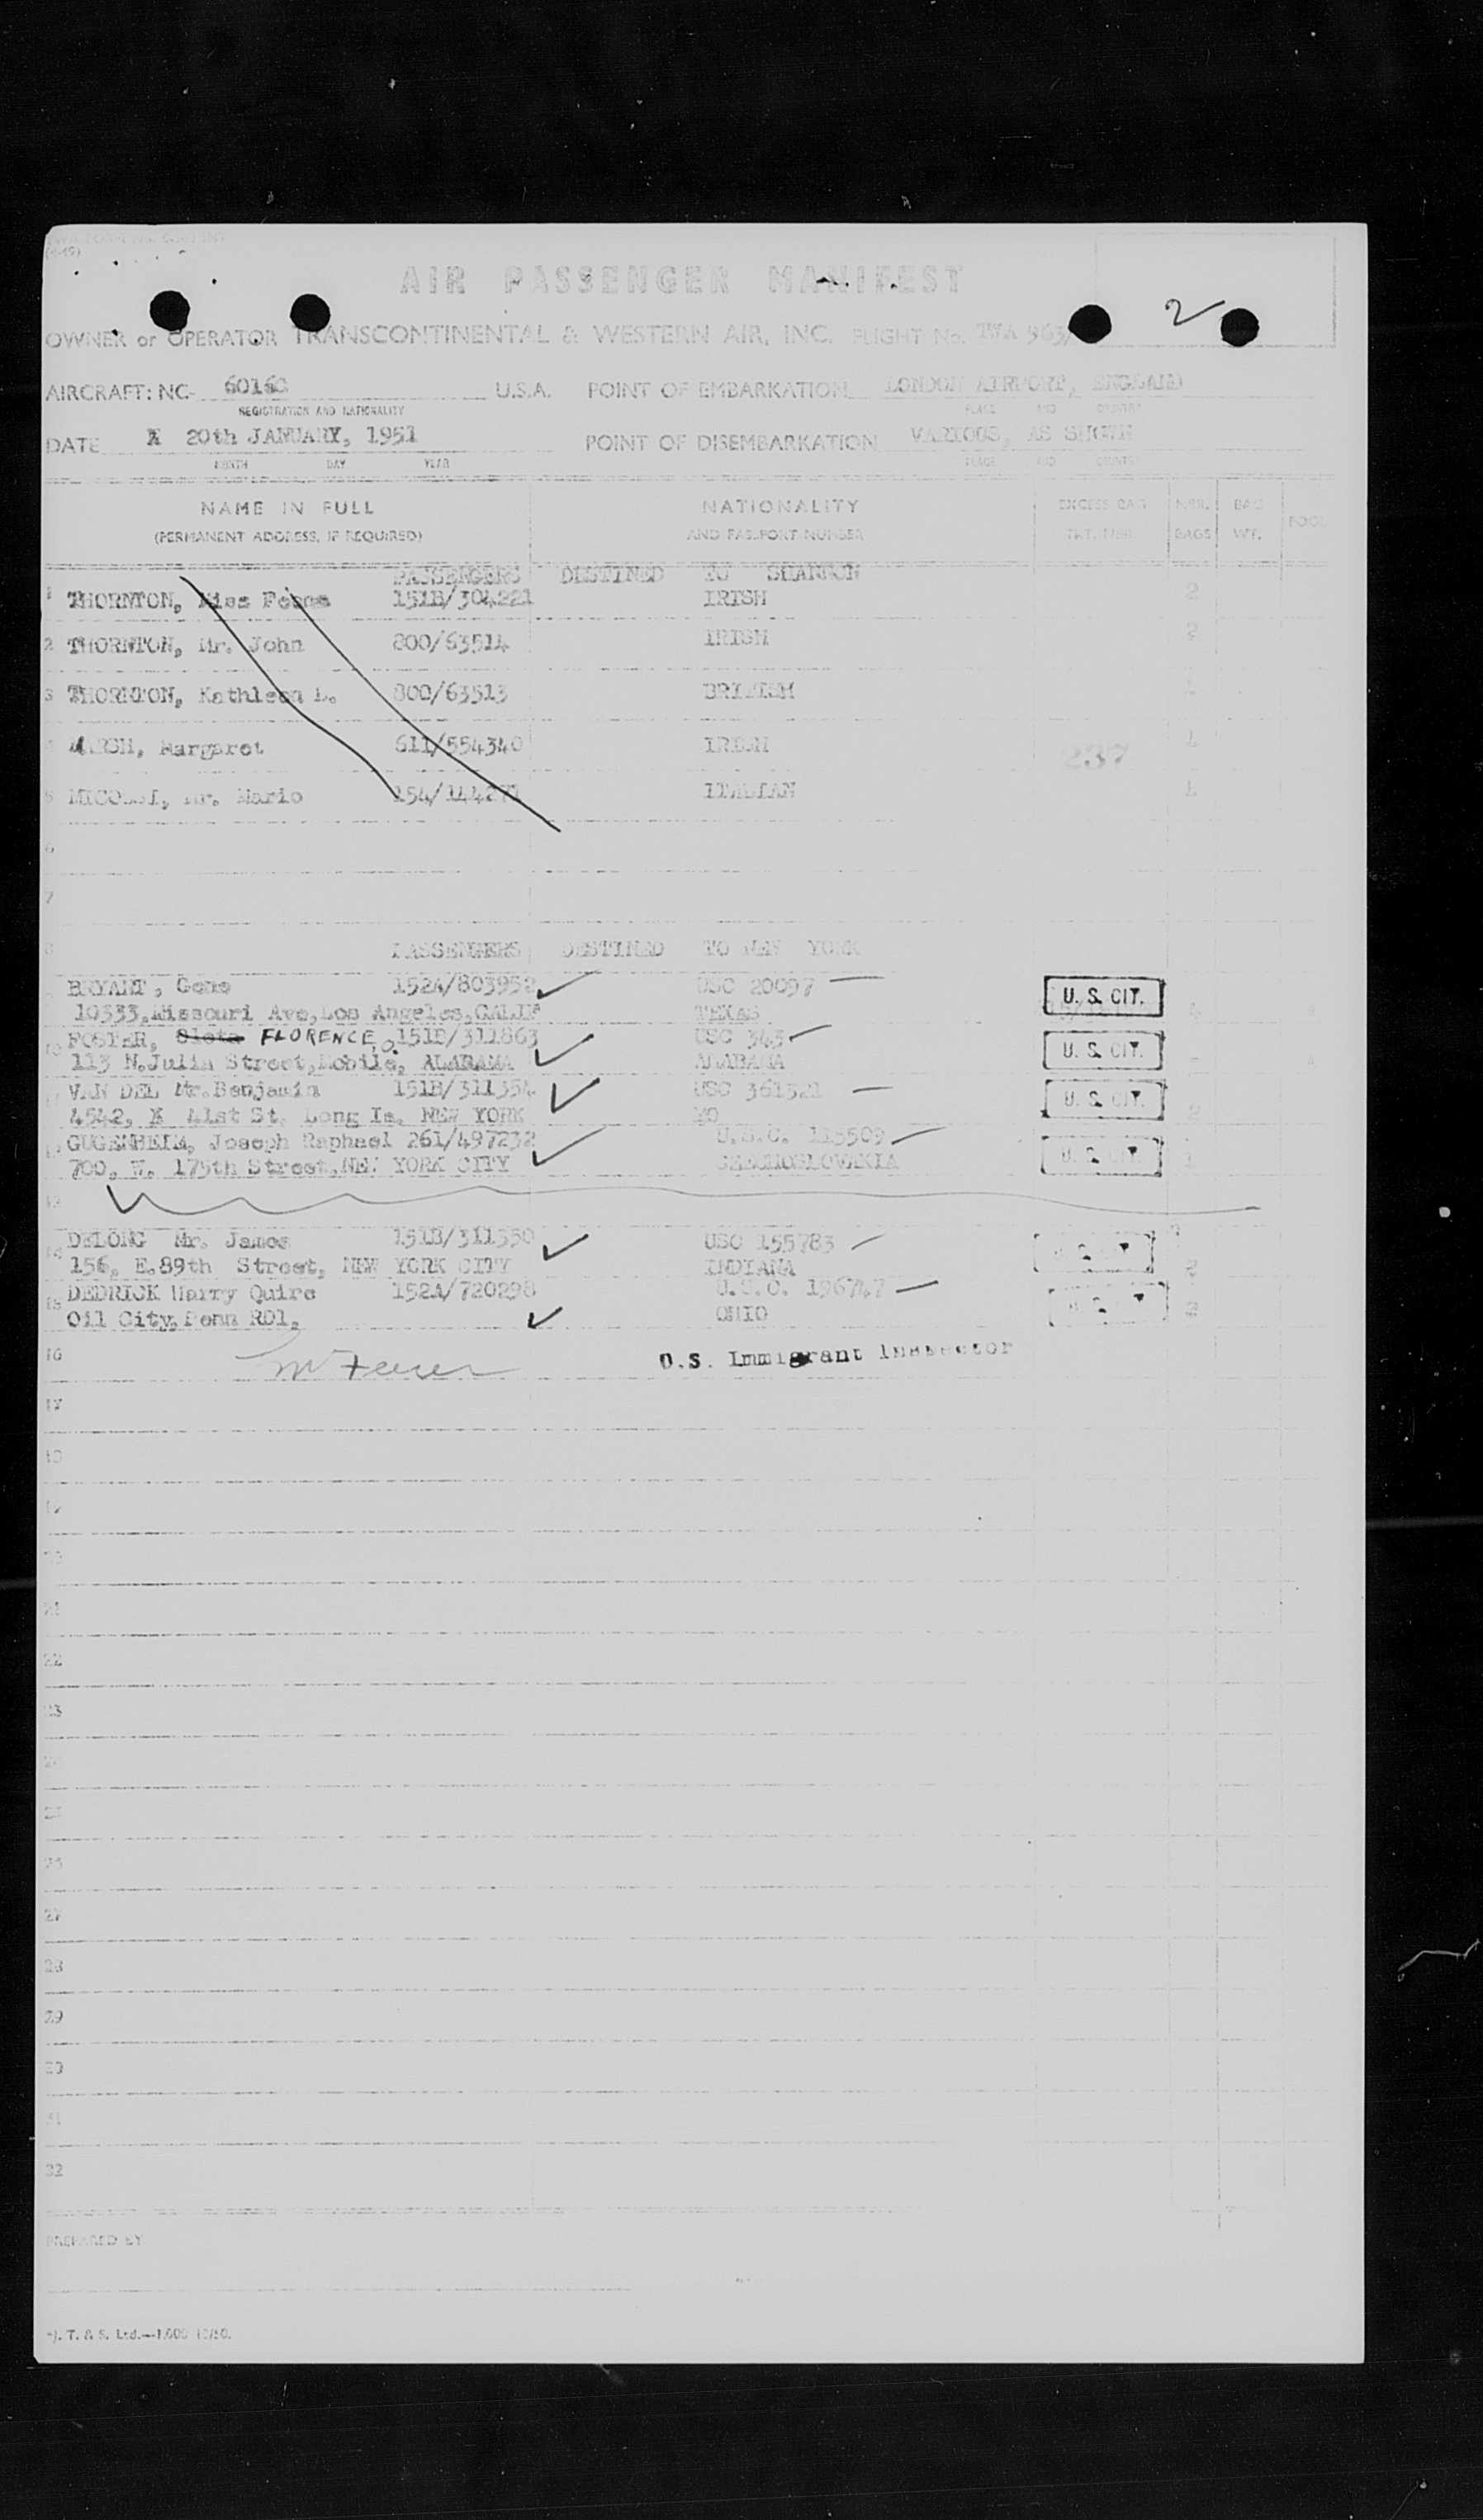 (4-49)
AIR PASSENGER MANIFEST
2
OWNER or OPERATOR TRANSCONTINENTAL & WESTERN AIR, INC. FLIGHT No. TWA 963/
AIRCRAFT: NC- 60160 U.S.A. POINT OF EMBARKATION LONDON AIRPORT, ENGLAND
REGISTRATION AND NATIONALITY PLACE AND COUNTRY
DATE X 20th JANUARY, 1951 POINT OF DISEMBARKATION VARIOUS, AS SHOWN
MONTH DAY YEAR PLACE AND COUNTRY
NAME IN FULL NATIONALITY EXCESS BAG NMR. BAG
(PERMANENT ADDRESS, IF REQUIRED) AND PASSPORT NUMBER BAGS WT.
PASSENGERS DESTINED TO SHANNON
1 THORNTON, Miss 151B/304221 IRISH 2
2 THORNTON, Mr. John 800/63514 IRISH 2
3 THORNTON, Kathleen 800/63513 BRITISH
4 MARSH, Margaret 611/554340 IRISH 1
5 Mr. Mario ITALIAN
6
7
8 PASSENGERS DESTINED TO NEW YORK
BRYANT, Gene 152A/803952 USC 20097 U. S. CIT.
10333, Missouri Ave, Los Angeles, CALIF TEXAS
10 FOSTER, FLORENCE, O. 151B/311863 USC 343 U. S. CIT.
113 N. Julia Street, Mobile, ALABAMA ALABAMA
11 VAN DEL Mr. Benjamin 151B/311354 USC 361521 U. S. CIT.
4542, X 41st St. Long Is. NEW YORK MO 2
GUGENHEIM, Joseph Raphael 261/497232 U.S.C. 113509 U. S. CIT.
700, W. 175th Street, NEW YORK CITY CZECHOSLOVAKIA
13
14 DELONG Mr. James 151B/311350 USC 155783
156, E. 89th Street, NEW YORK CITY INDIANA 2
15 DEDRICK Harry Quire 152A/720298 U.S.C. 196747
Oil City, Penn RD1, OHIO
16 U.S. Immigrant Inspector
17
18
19
20
21
22
23
24
25
26
27
28
29
30
31
32
PREPARED BY
T. & S. Ltd.—1,000